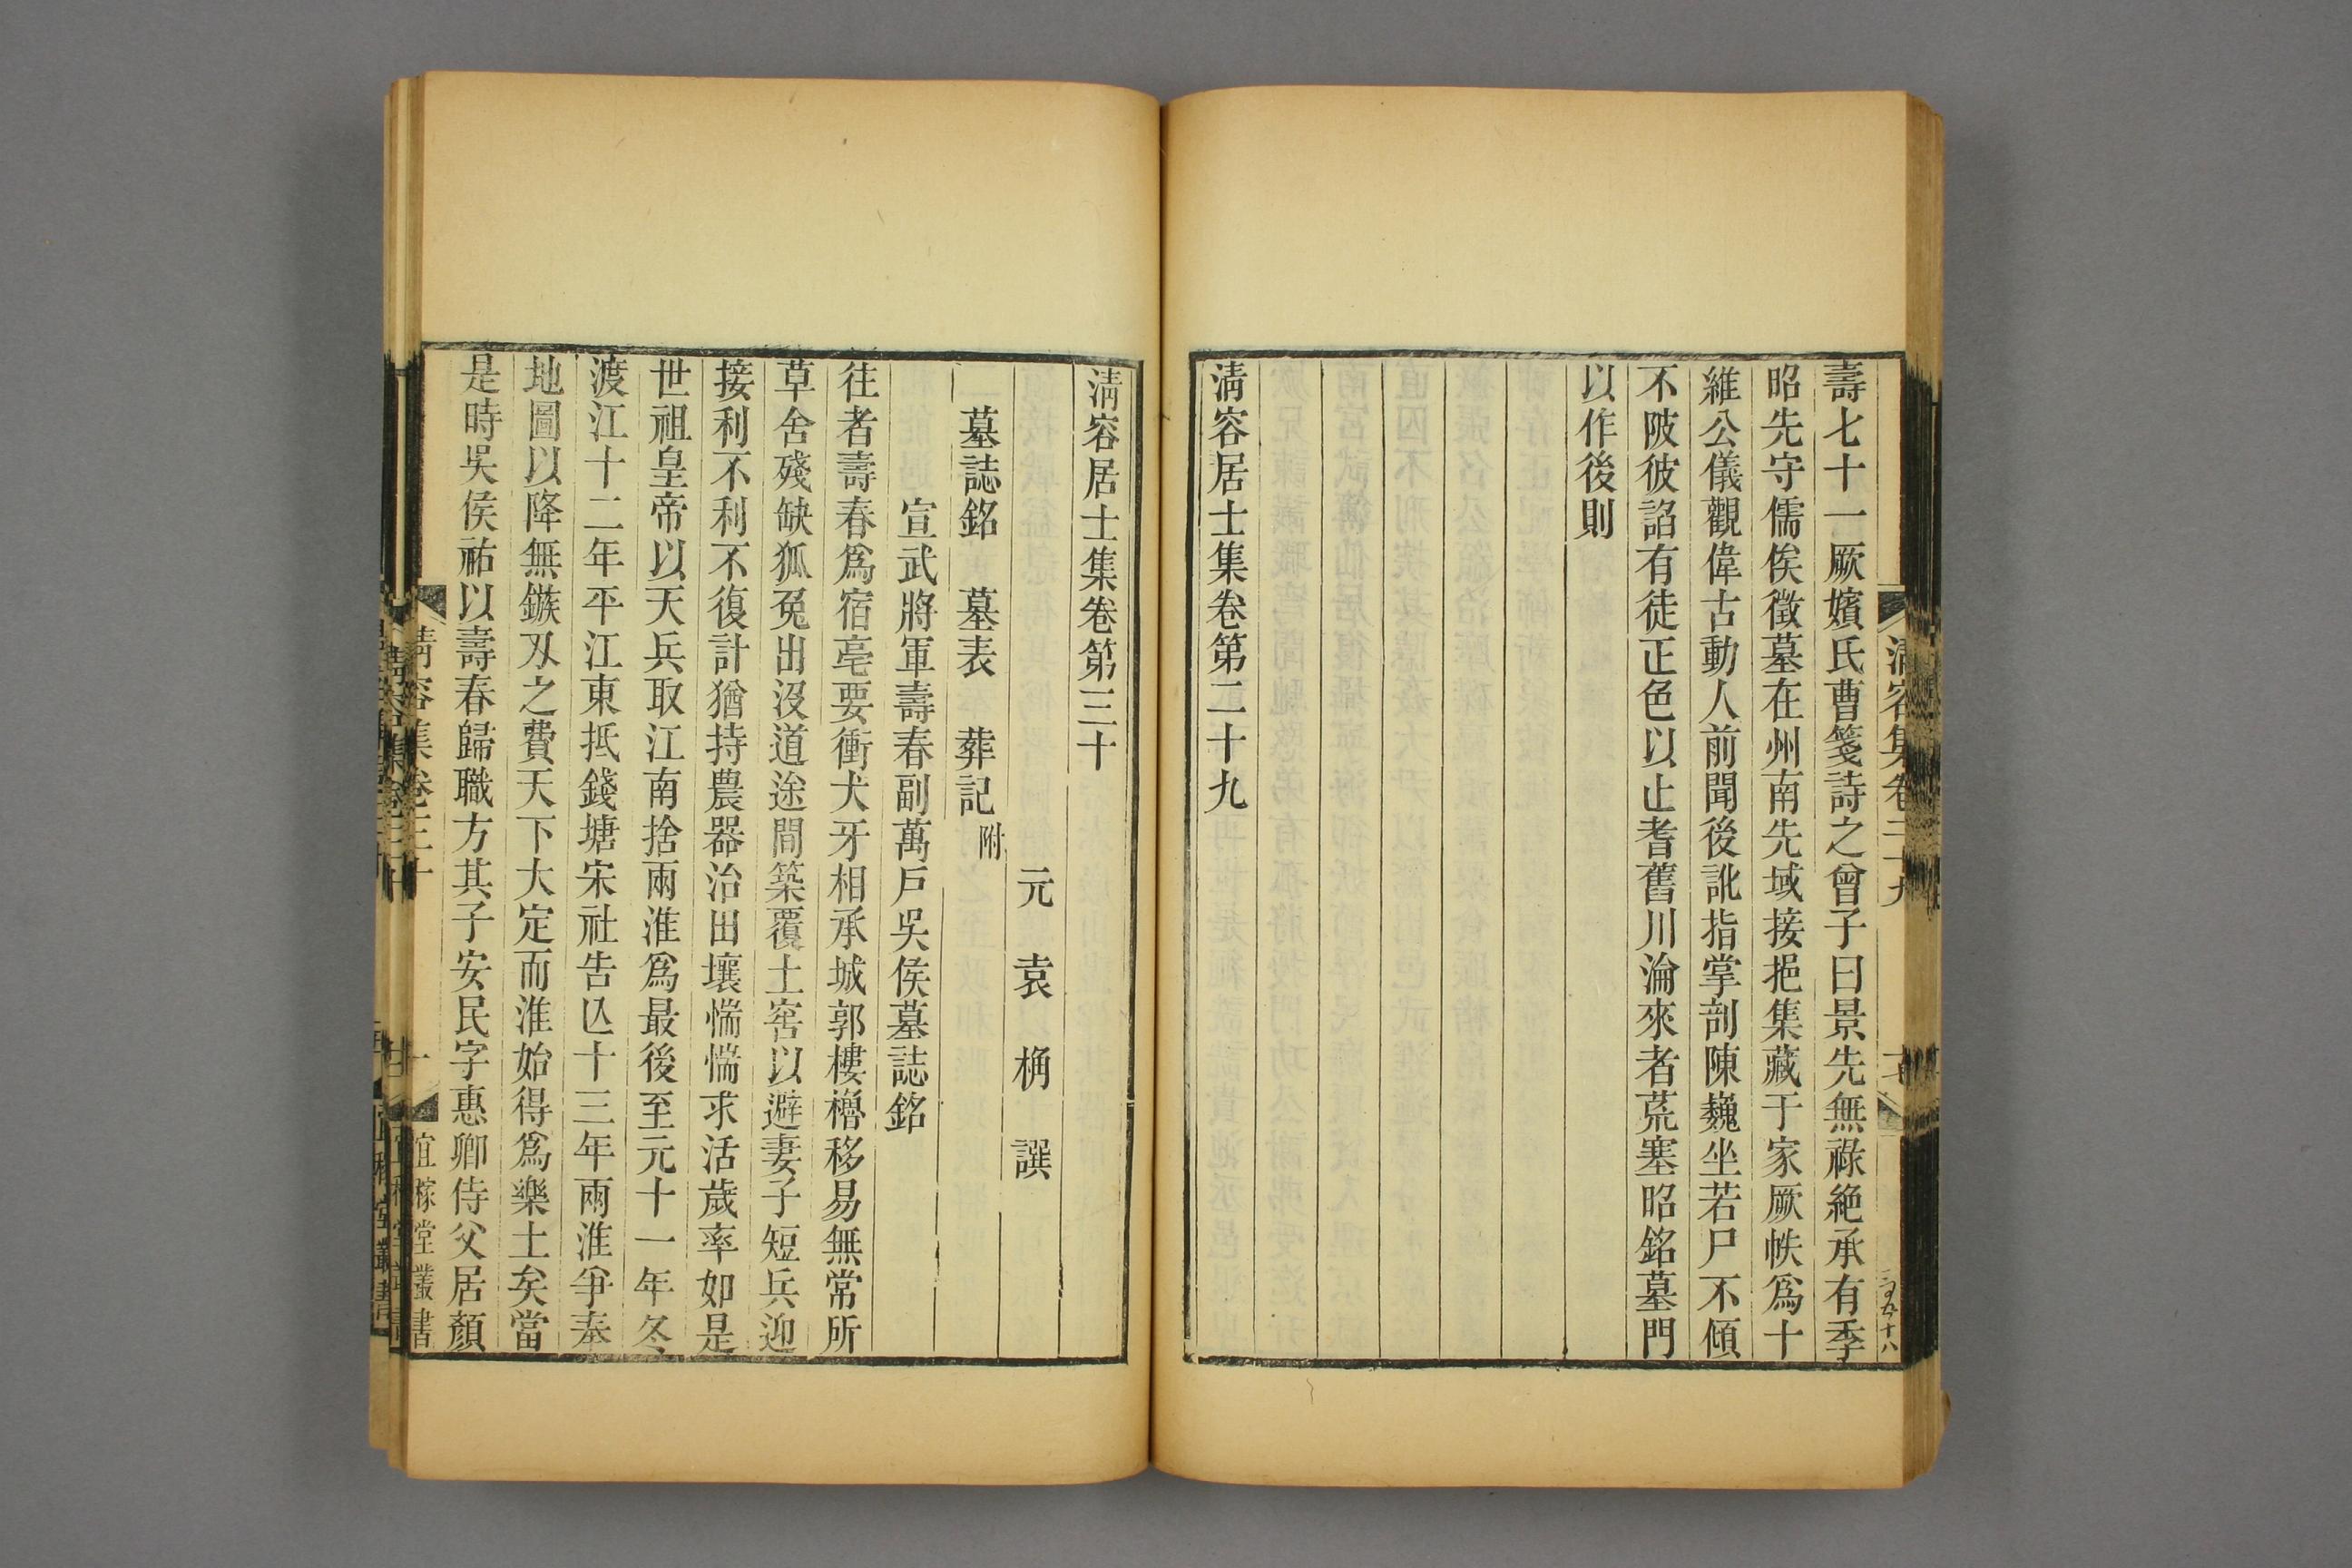 壽七十一厥嬪氏曹箋詩之曾子曰景先無祿絶承有季
昭先守儒俟徵墓在州南先域接挹集藏于家厥帙爲十
維公儀觀偉古動人前聞後訛指掌剖陳巍坐若尸不傾
不陂彼諂有徒正色以止耆舊川淪來者荒塞昭銘墓門
以作後則
清容居士集卷第二十九
清容居士集卷第三十
元 袁 桷 譔
墓誌銘 墓表 葬記附
宣武將軍壽春副萬戸吳侯墓誌銘
往者壽春爲宿亳要衝犬牙相承城郭樓櫓移易無常所
草舍殘缺狐兔出沒道途間築覆土窖以避妻子短兵迎
接利不利不復計猶持農器治田壤惴惴求活歲率如是
世祖皇帝以天兵取江南捨兩淮爲最後至元十一年冬
渡江十二年平江東抵錢塘宋社告亾十三年兩淮爭奉
地圖以降無鏃刄之費天下大定而淮始得爲樂土矣當
是時吳侯祐以壽春歸職方其子安民字惠卿侍父居顏
清容集卷三十
一
宜稼堂叢書